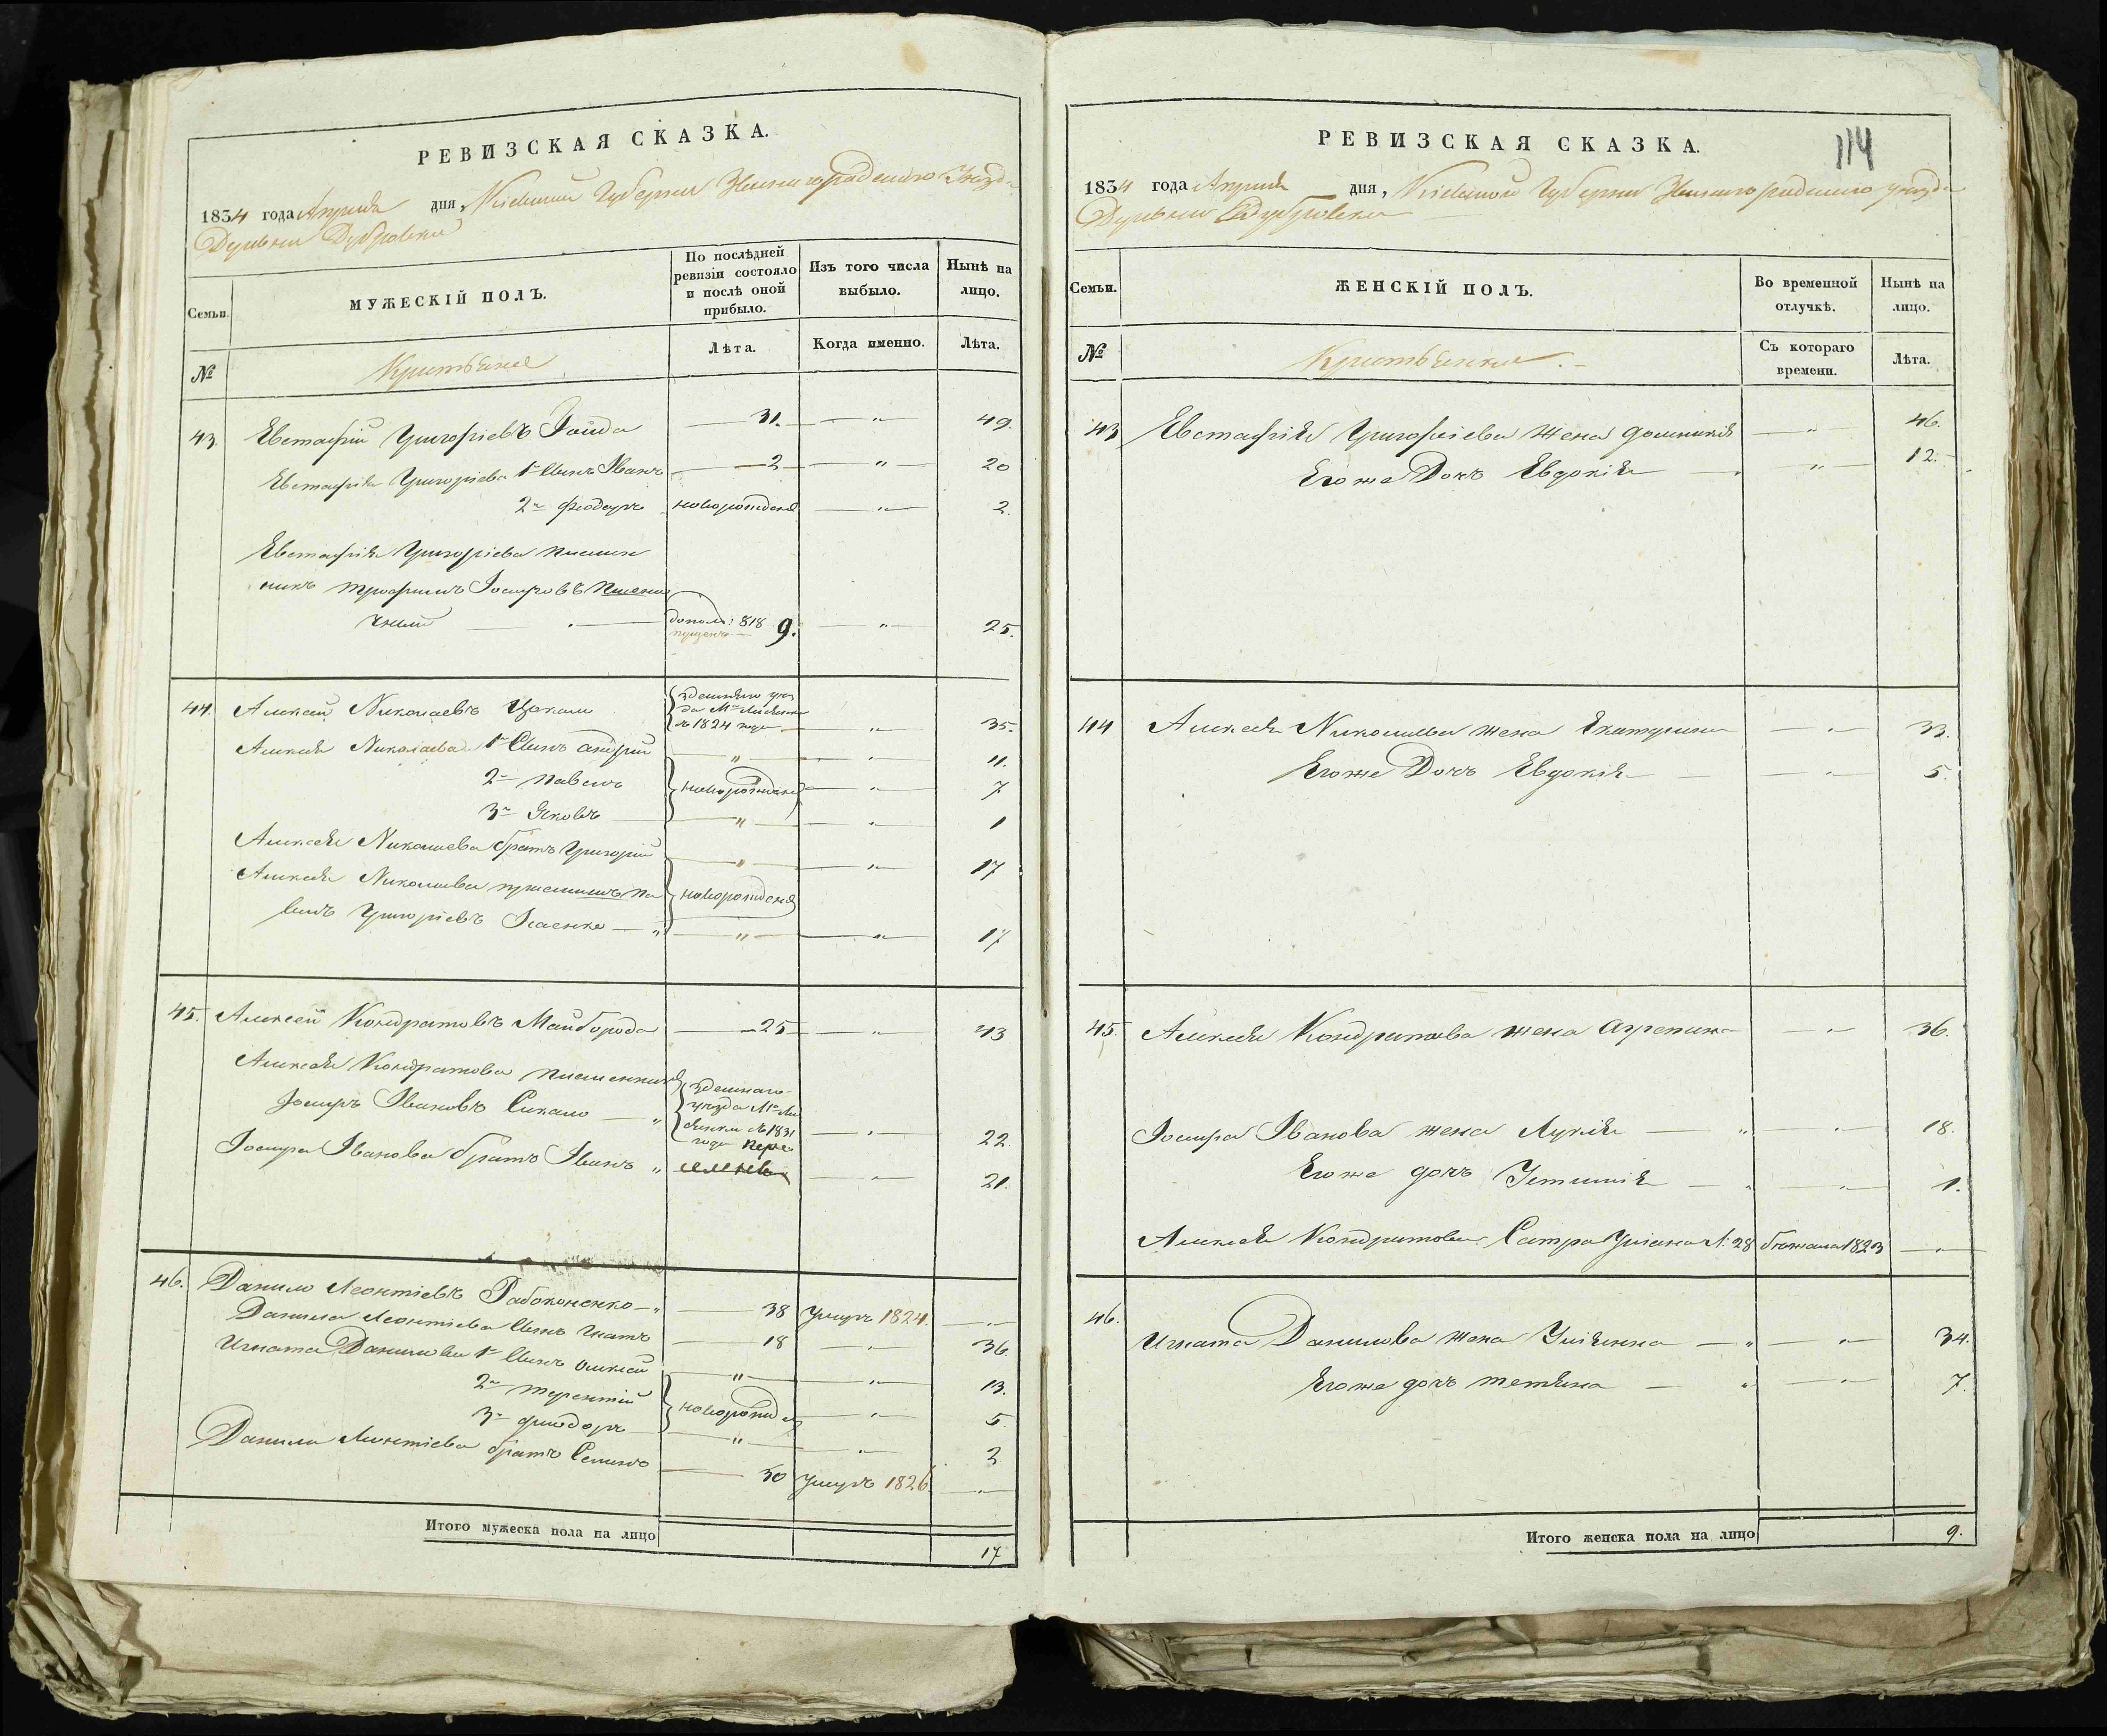 РЕВИЗСКАЯ СКАЗКА.
1834 года Апреля дня, Кіевской Губерніи Звенигородскаго Уѣзда
Деревни Дубровки
Семьи.
МУЖЕСКІЙ ПОЛЪ.
По послѣдней ревизіи состояло и послѣ оной прибыло.
Изъ того числа выбыло.
Нынѣ на лицо.
№
Крестьяне
Лѣта.
Когда именно.
Лѣта.
43. Евстафій Григоріевъ 31. " 49.
Евстафія Григоріева 1й Сынъ Иванъ 2 " 20
2й Феодоръ новорожденъ " 2.
Евстафія Григоріева племян
никъ Трофимъ Іосифовъ Пшени
чный допол: 818 9. " 25.
пущенъ
44. Алексей Николаевъ
здешняго уез
да Мѣ Лисянки
съ 1824 года " 35.
Алексея Николаева 1й Сынъ андрей " " 11.
2й Павелъ новорожденные " 7
3й Яковъ " " 1
Алексея Николаева братъ Григорій " " 17
Алексея Николаева приемышъ Па
велъ Григоріевъ Исаенко " новорожденъ " " 17
45. Алексей Кондратовъ Майборода 25 " 43
Алексея Кондратова племянники
Іосифъ Ивановъ Сикало "
здешнаго
уезда Мѣ Ли
сянки съ 1831
года пере
селены
" 22.
Іосифа Иванова братъ Иванъ " " 21.
46. Данило Леонтіевъ Рабоконенко " 38 умеръ 1824. "
Данила Леонтіева Сынъ Игнатъ 18 " 36.
Игната Данилова 1й Сынъ Олексей " " 13.
2й терентій новорожден " 5.
3й фиодоръ " " 2
Данила Леонтіева братъ Семенъ 50 умеръ 1826 "
Итого мужеска пола на лицо 17
РЕВИЗСКАЯ СКАЗКА.
114
1834 года Апреля дня, Кіевской Губерніи Звенигородскаго уезда
Деревни Дубровки
Семьи.
ЖЕНСКІЙ ПОЛЪ.
Во временной отлучкѣ.
Нынѣ на лицо.
№
Крестьянки
Съ котораго времени.
Лѣта.
43 Евстафія Григоріева жена Домникія " 46.
Егоже Дочъ Евдокія " 12.
44 Алексея Николаева жена Екатерина " 33.
Егоже Дочъ Евдокія " 5.
45. Алексея Кондратова жена Агрепина " 36.
Іосифа Иванова жена Лукія " " 18.
Егоже дочъ Устинія " " 1.
Алексея Кондратова Сестра Уліана Л: 28 бежала 1823 "
46.
Игната Данилова жена Уліянна " " 34.
Егоже дочъ тетяна " " 7.
Итого женска пола на лицо 9.